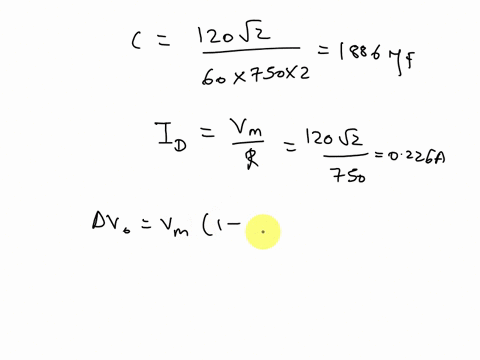 C = 120√2 / 60×750×2 = 1886 μf
I_D = V_m / R = 120√2 / 750 = 0.226A
ΔV₀ = V_m (1 −